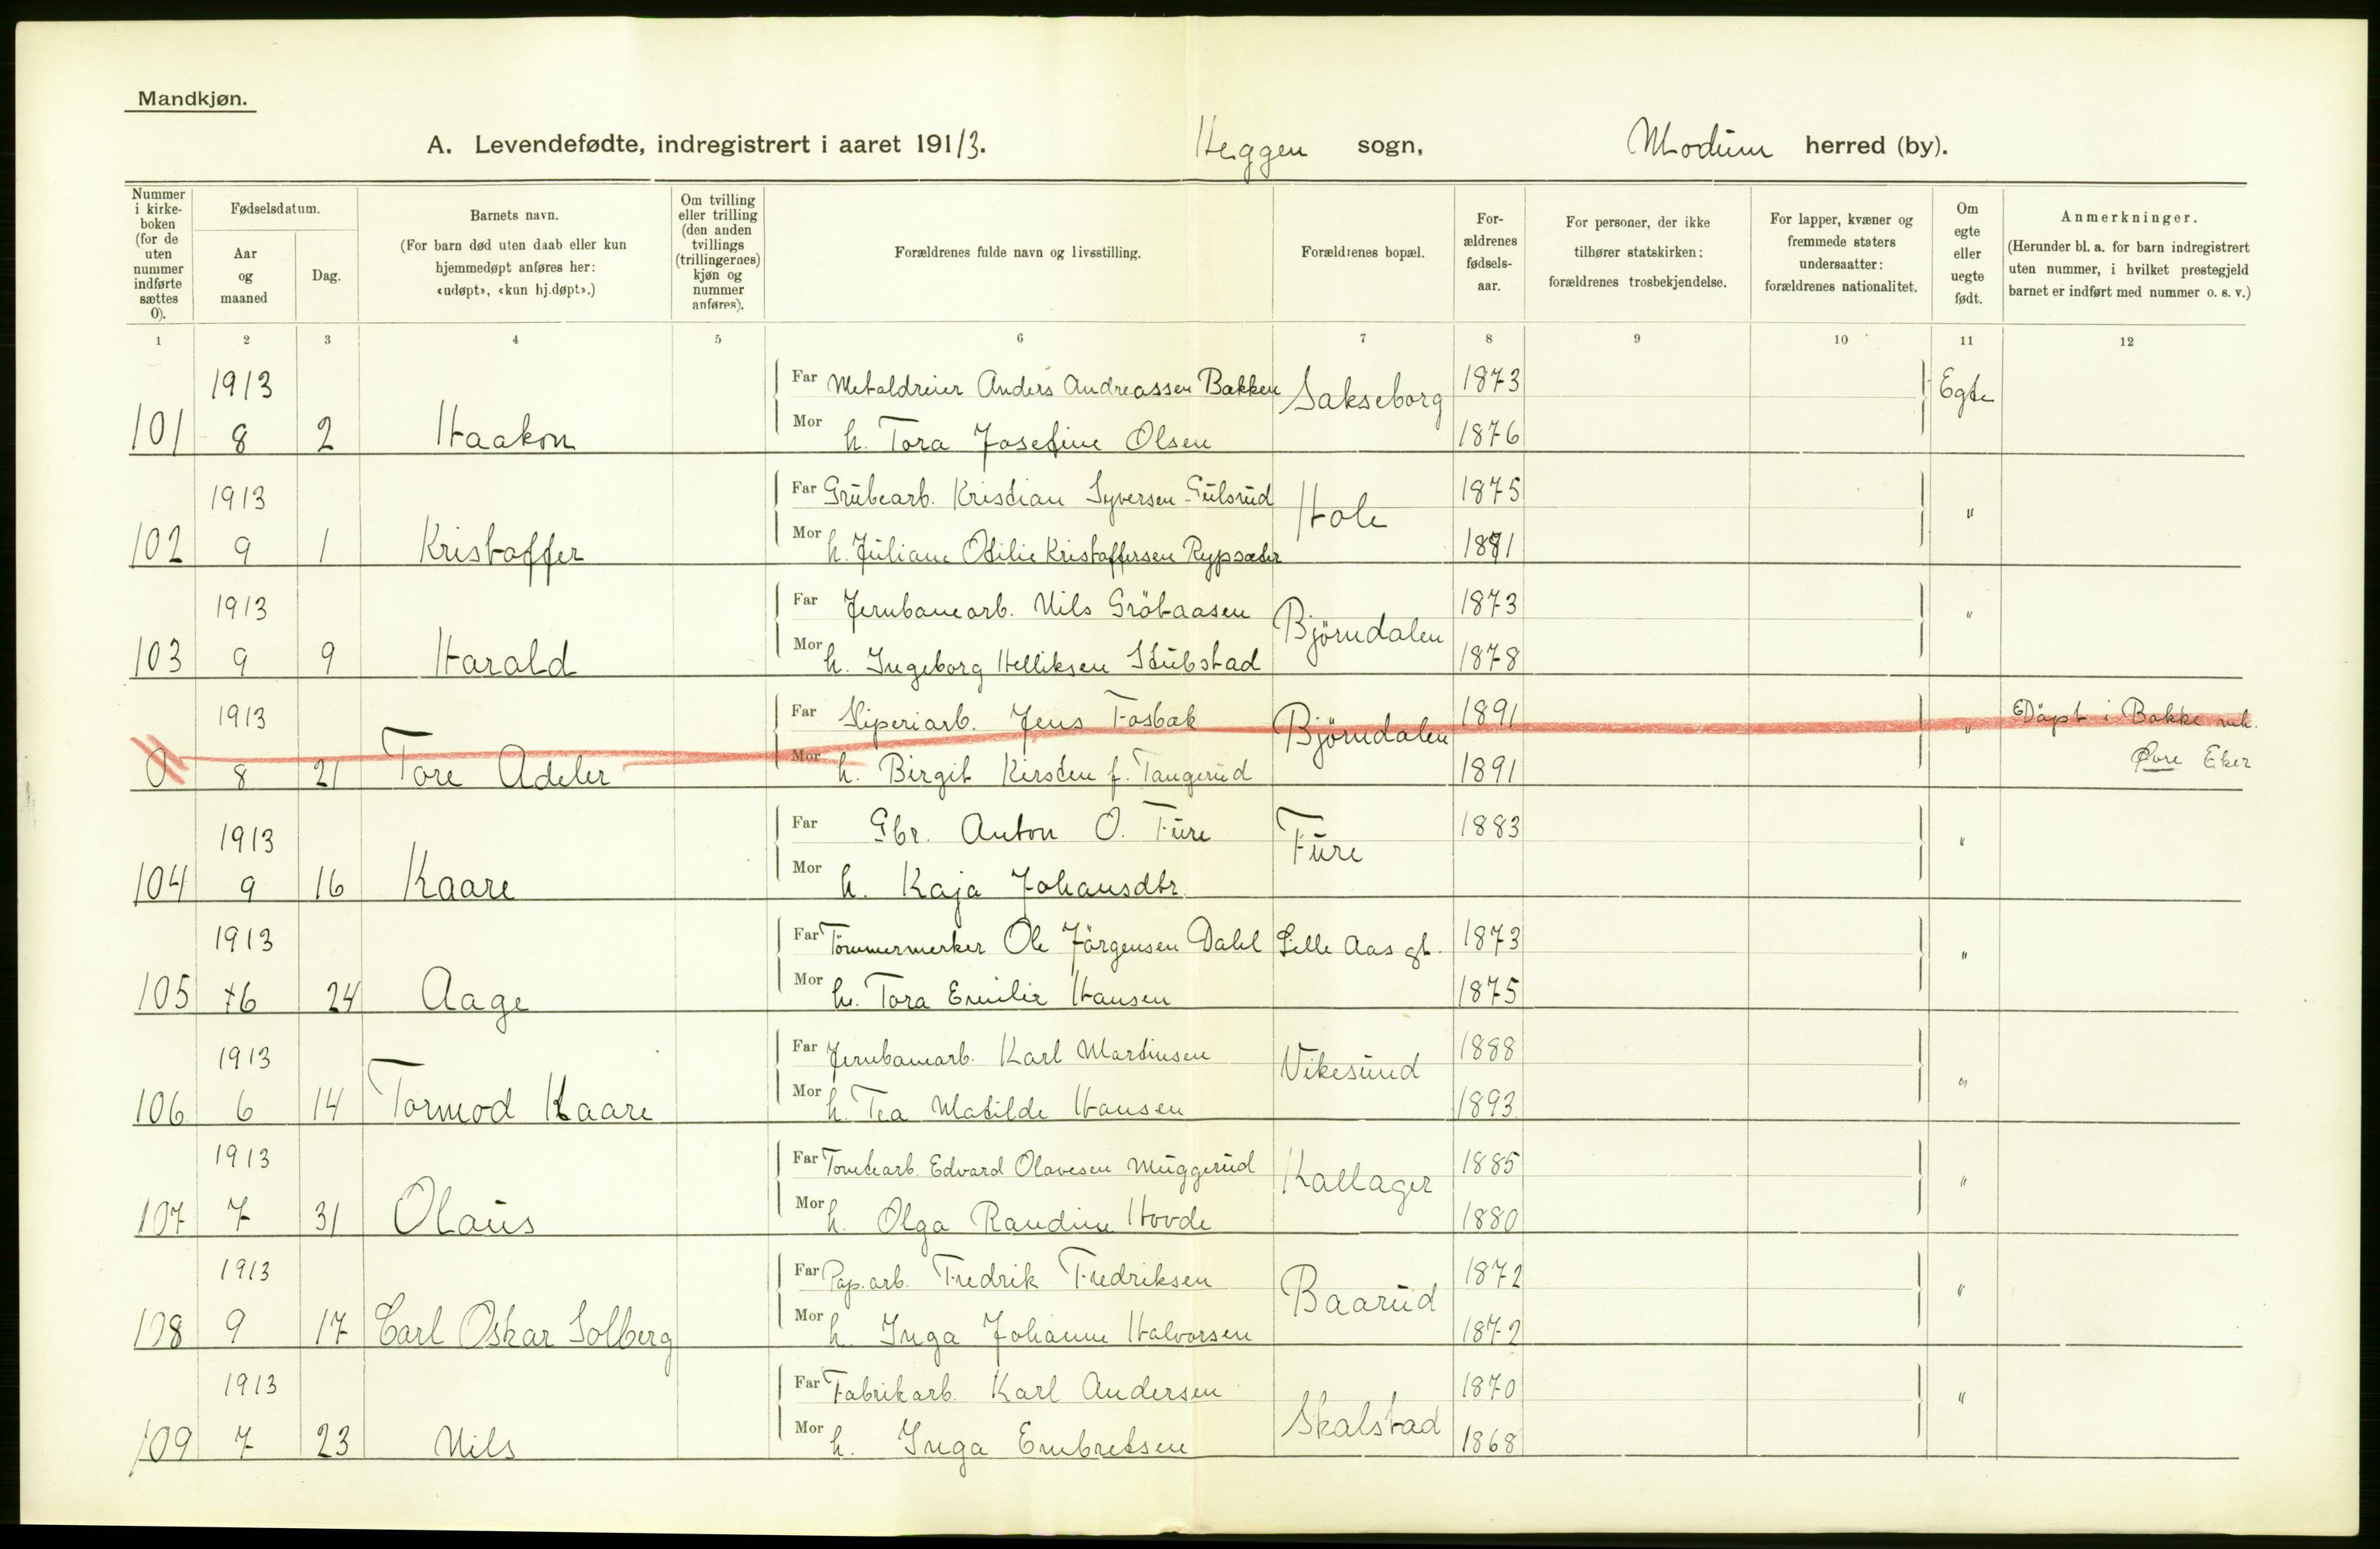 Mandkjøn.
A. Levendefødte, indregistrert i aaret 1913. Heggen sogn, Modum herred (by).
Nummer i kirke-boken (for de uten nummer indførte sættes 0).
Fødselsdatum.
Aar og maaned
Dag.
Barnets navn.
(For barn død uten daab eller kun hjemmedøpt anføres her: «udøpt», «kun hj.døpt».)
Om tvilling eller trilling (den anden tvillings (trillingernes) kjøn og nummer anføres).
Forældrenes fulde navn og livsstilling.
Forældrenes bopæl.
For-ældrenes fødsels-aar.
For personer, der ikke tilhører statskirken: forældrenes trosbekjendelse.
For lapper, kvæner og fremmede staters undersaatter: forældrenes nationalitet.
Om egte eller uegte født.
Anmerkninger.
(Herunder bl. a. for barn indregistrert uten nummer, i hvilket prestegjeld barnet er indført med nummer o. s. v.)
1 2 3 4 5 6 7 8 9 10 11 12
1913 Far Metaldreier Anders Andreassen Bakken Sakseborg 1873 Egte
101 8 2 Haakon Mor h. Tora Josefine Olsen 1876
1913 Far Grubearb. Kristian Syversen Gulsrud Hole 1875 "
102 9 1 Kristoffer Mor h. Juliane Otilie Kristoffersen Rypsæter 1881
1913 Far Jernbanearb. Nils Grötaasen Björndalen 1873 "
103 9 9 Harald Mor h. Ingeborg Helliksen Stubstad 1878
1913 Far Sliperiarb. Jens Fosbak Björndalen 1891 " Döpt i Bakke
0 8 21 Tore Adeler Mor h. Birgit Kirsten f. Tangerud 1891 Øvre Eker
1913 Far Gbr. Anton O. Fure Fure 1883 "
104 9 16 Kaare Mor h. Kaja Johansdtr.
1913 Far Tömmermerker Ole Jörgensen Dahl Lille Aas gt. 1873 "
105 6 24 Aage Mor h. Tora Emilie Hansen 1875
1913 Far Jernbanearb. Karl Martinsen Vikesund 1888 "
106 6 14 Tormod Kaare Mor h. Tea Matilde Hansen 1893
1913 Far Tomtearb. Edvard Olavesen Muggerud Kallager 1885 "
107 7 31 Olaus Mor h. Olga Randine Hovde 1880
1913 Far Pap.arb. Fredrik Fredriksen Baarud 1872 "
108 9 17 Carl Oskar Solberg Mor h. Inga Johanne Halvorsen 1872
1913 Far Fabrikarb. Karl Andersen Skalstad 1870 "
109 7 23 Nils Mor h. Inga Embretsen 1868